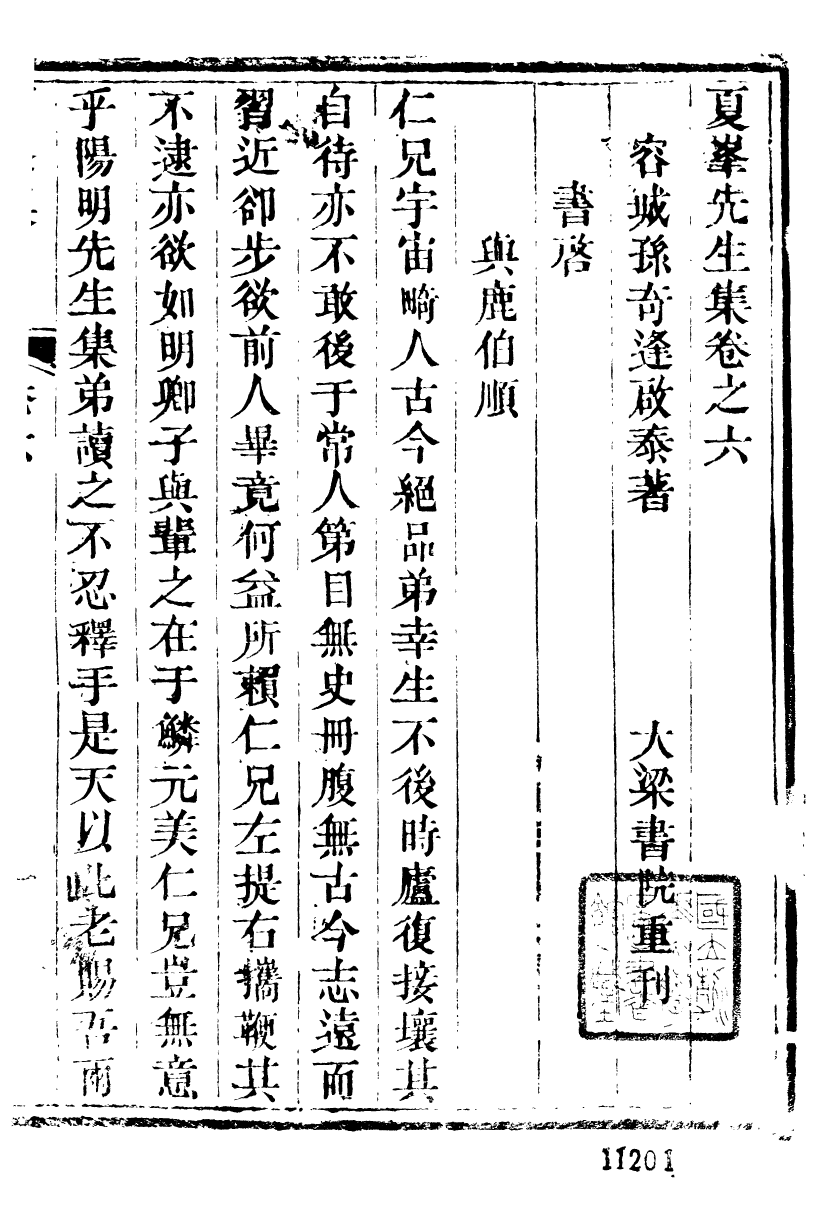 夏峯先生集卷之六
容城孫奇逢啟泰著　大梁書院重刊
書啓
與鹿伯順
仁兄宇宙畸人古今絕品弟幸生不後時廬復接壤其
自待亦不敢後于常人第目無史冊腹無古今志遠而
習近卻步欲前人畢竟何益所賴仁兄左提右攜鞭其
不逮亦欲如明卿子與輩之在于鱗元美仁兄豈無意
乎陽明先生集弟讀之不忍釋手是天以此老賜吾兩
11201